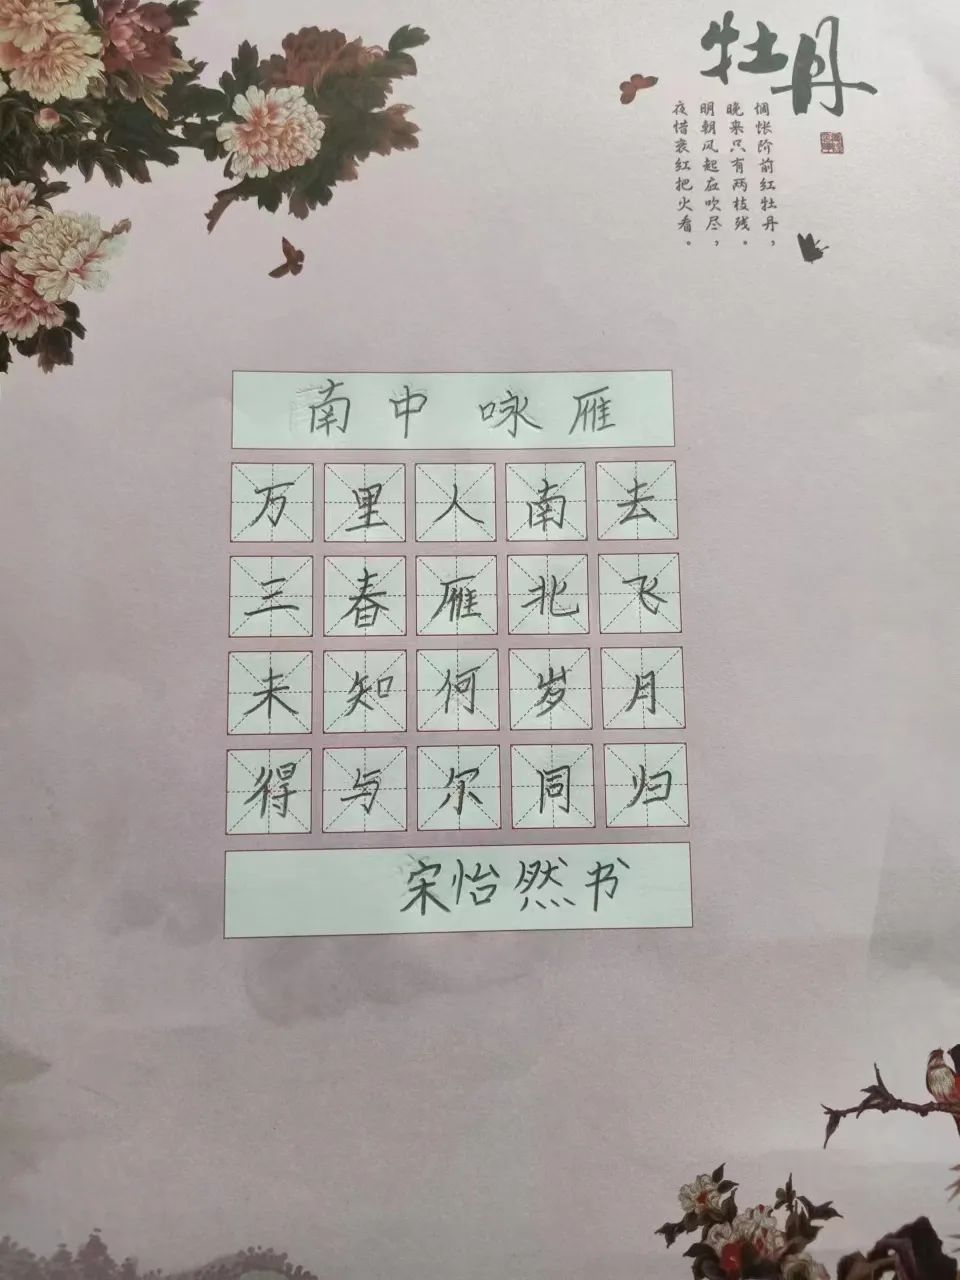 牡丹
惆怅阶前红牡丹，
晚来只有两枝残。
明朝风起应吹尽，
夜惜衰红把火看。
南中咏雁
万里人南去
三春雁北飞
未知何岁月
得与尔同归
宋怡然书